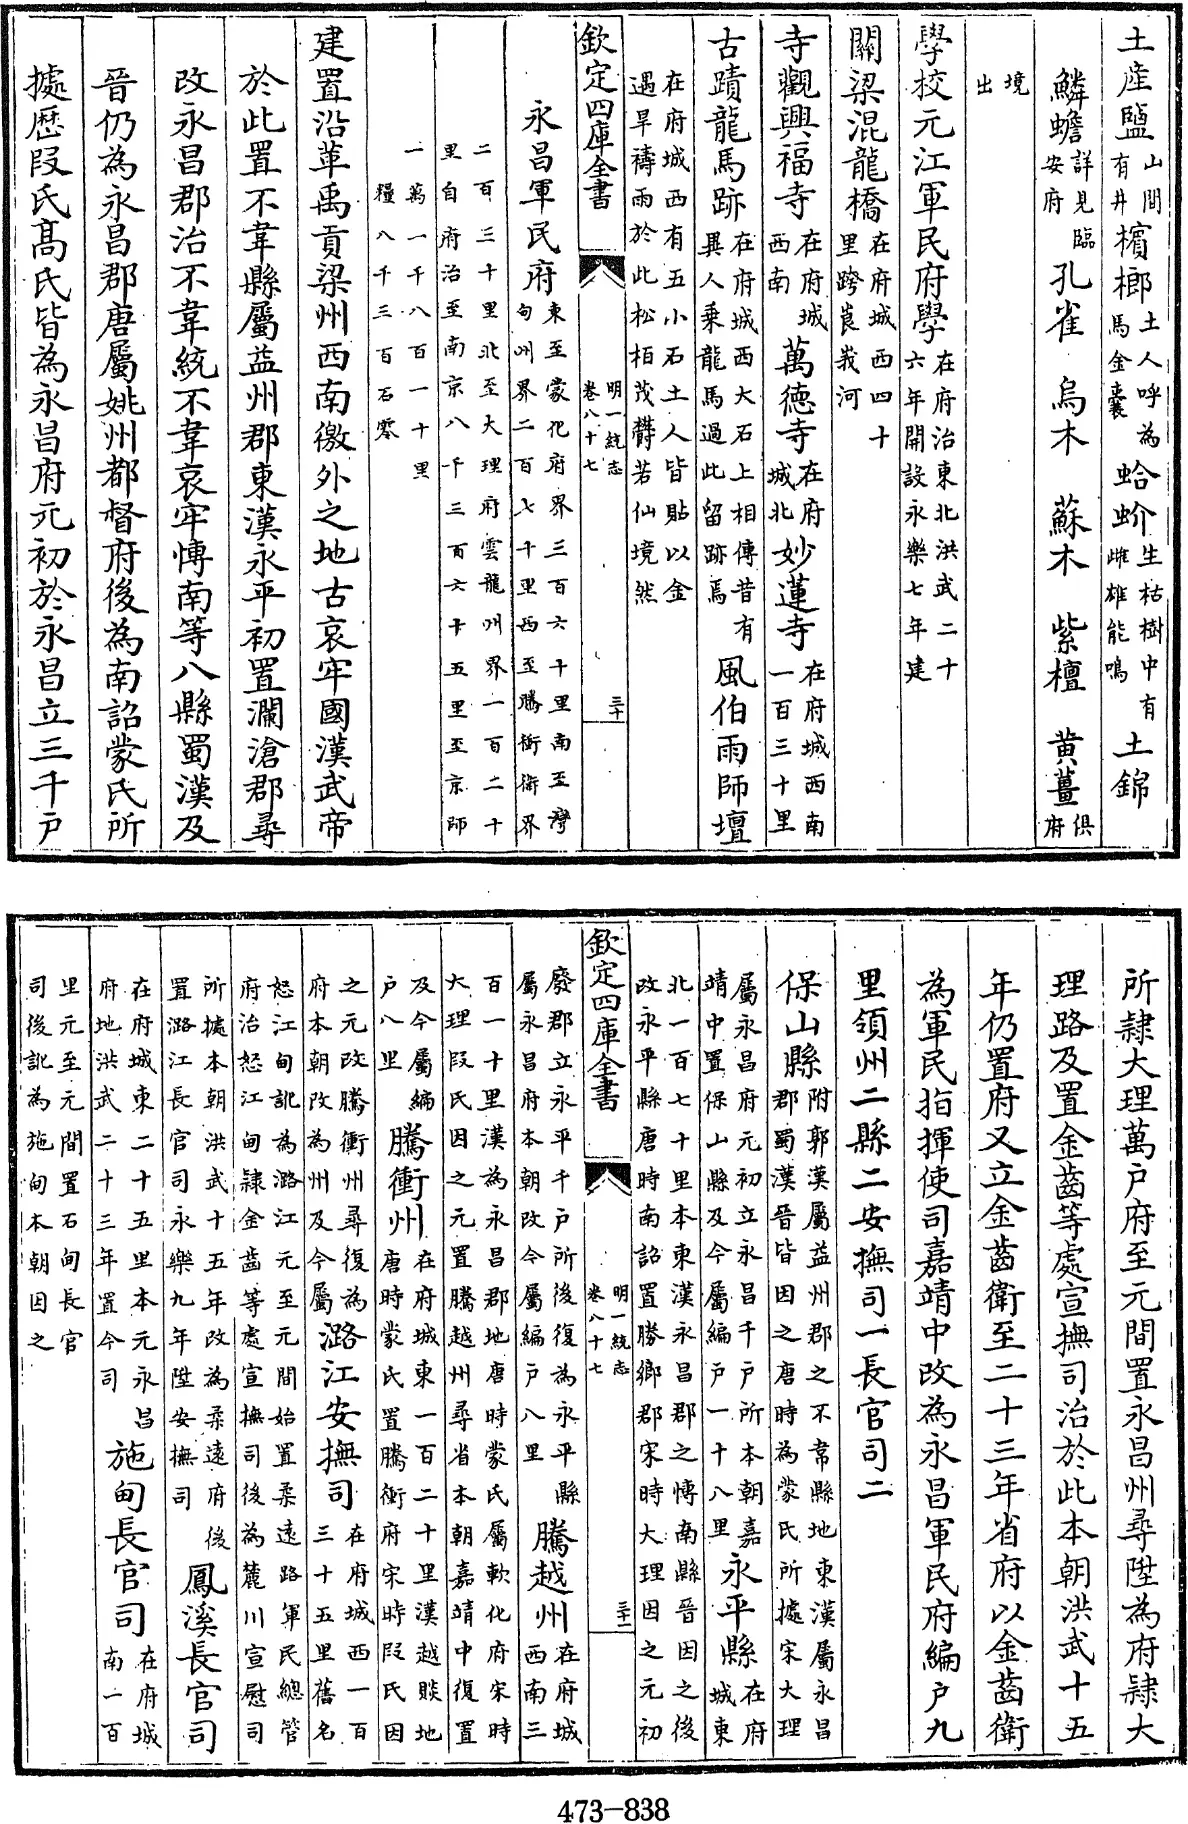 土產鹽山間有井檳榔土人呼為馬金囊蛤蚧生枯樹中有雌雄能鳴土錦
鱗蟾詳見臨安府孔雀 烏木 蘇木 紫檀 黄薑俱府
境出
學校元江軍民府學在府治東北洪武二十六年開設永樂七年建
關梁混龍橋在府城西四十里跨崀峩河
寺觀興福寺在府城西南萬德寺在府城北妙蓮寺在府城西南一百三十里
古蹟龍馬跡在府城西大石上相傳昔有異人乗龍馬過此留跡焉風伯雨師壇
在府城西有五小石土人皆貼以金遇旱禱雨於此松栢茂欝若仙境然
欽定四庫全書 明一統志卷八十七 三十
永昌軍民府東至蒙化府界三百六十里南至灣甸州界二百七十里西至騰衝衛界
二百三十里北至大理府雲龍州界一百二十里自府治至南京八千三百六十五里至京師
一萬一千八百一十里糧八千三百石零
建置沿革禹貢梁州西南徼外之地古哀牢國漢武帝
於此置不韋縣屬益州郡東漢永平初置瀾滄郡尋
改永昌郡治不韋統不韋哀牢愽南等八縣蜀漢及
晉仍為永昌郡唐屬姚州都督府後為南詔蒙氏所
㨿歷叚氏髙氏皆為永昌府元初於永昌立三千户
所隷大理萬户府至元間置永昌州尋陞為府隷大
理路及置金齒等處宣撫司治於此本朝洪武十五
年仍置府又立金齒衛至二十三年省府以金齒衛
為軍民指揮使司嘉靖中改為永昌軍民府編户九
里領州二縣二安撫司一長官司二
保山縣附郭漢屬益州郡之不韋縣地東漢屬永昌郡蜀漢晉皆因之唐時為蒙氏所㨿宋大理
屬永昌府元初立永昌千户所本朝嘉靖中置保山縣及今屬編户一十八里永平縣在府城東
北一百七十里本東漢永昌郡之愽南縣晉因之後改永平縣唐時南詔置勝鄉郡宋時大理因之元初
欽定四庫全書 明一統志卷八十七 三十一
廢郡立永平千户所後復為永平縣屬永昌府本朝改今屬編户八里騰越州在府城西南三
百一十里漢為永昌郡地唐時蒙氏屬軟化府宋時大理叚氏因之元置騰越州尋省本朝嘉靖中復置
及今屬編户八里騰衝州在府城東一百二十里漢越賧地唐時蒙氏置騰衝府宋時叚氏因
之元改騰衝州尋復為府本朝改為州及今屬潞江安撫司在府城西一百三十五里舊名
怒江甸訛為潞江元至元間始置柔遠路軍民總管府治怒江甸隷金齒等處宣撫司後為麓川宣慰司
所㨿本朝洪武十五年改為柔遠府後置潞江長官司永樂九年陞安撫司鳳溪長官司
在府城東二十五里本元永昌府地洪武二十三年置今司施甸長官司在府城南一百
里元至元間置石甸長官司後訛為施甸本朝因之
473-838